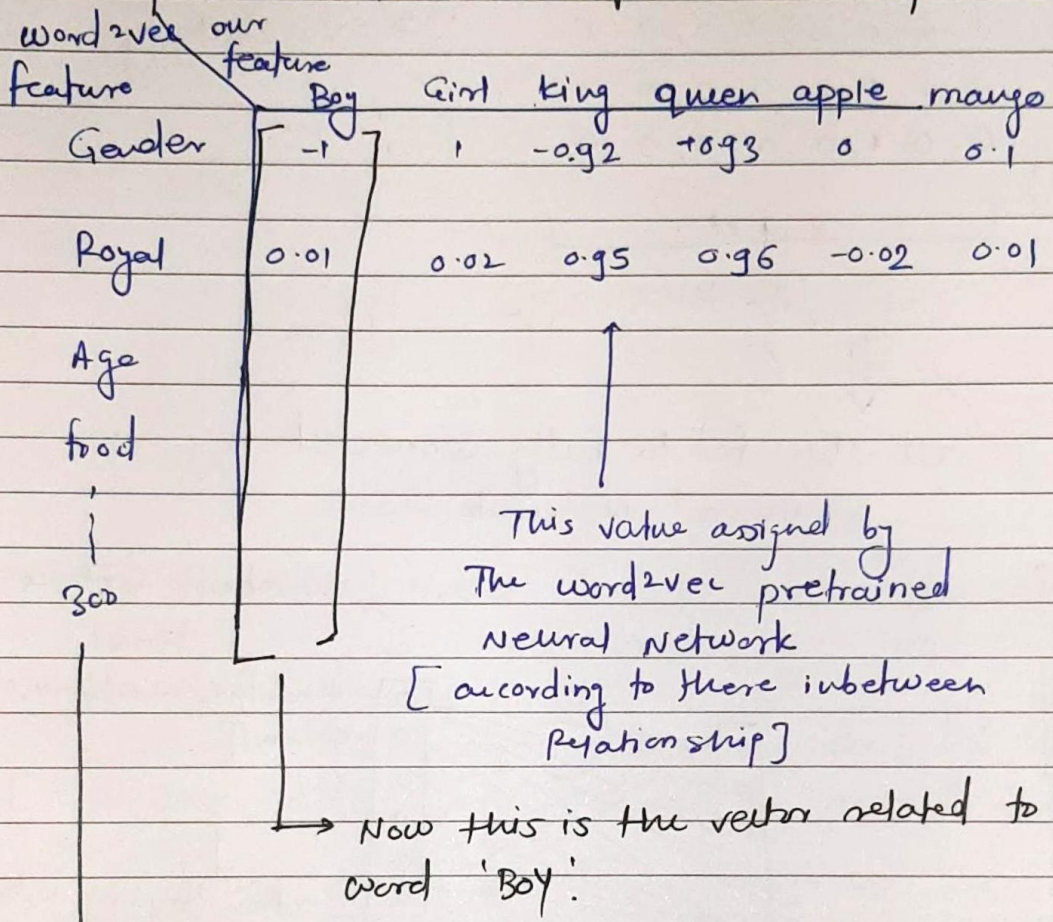 word2vec our
feature
feature Boy Girl king queen apple mango
Gender -1 1 -0.92 +0.93 0 0.1
Royal 0.01 0.02 0.95 0.96 -0.02 0.01
Age
food
300
This value assigned by
The word2vec pretrained
Neural Network
[ according to there inbetween
Relationship]
→ Now this is the vector related to
word 'BOY'.